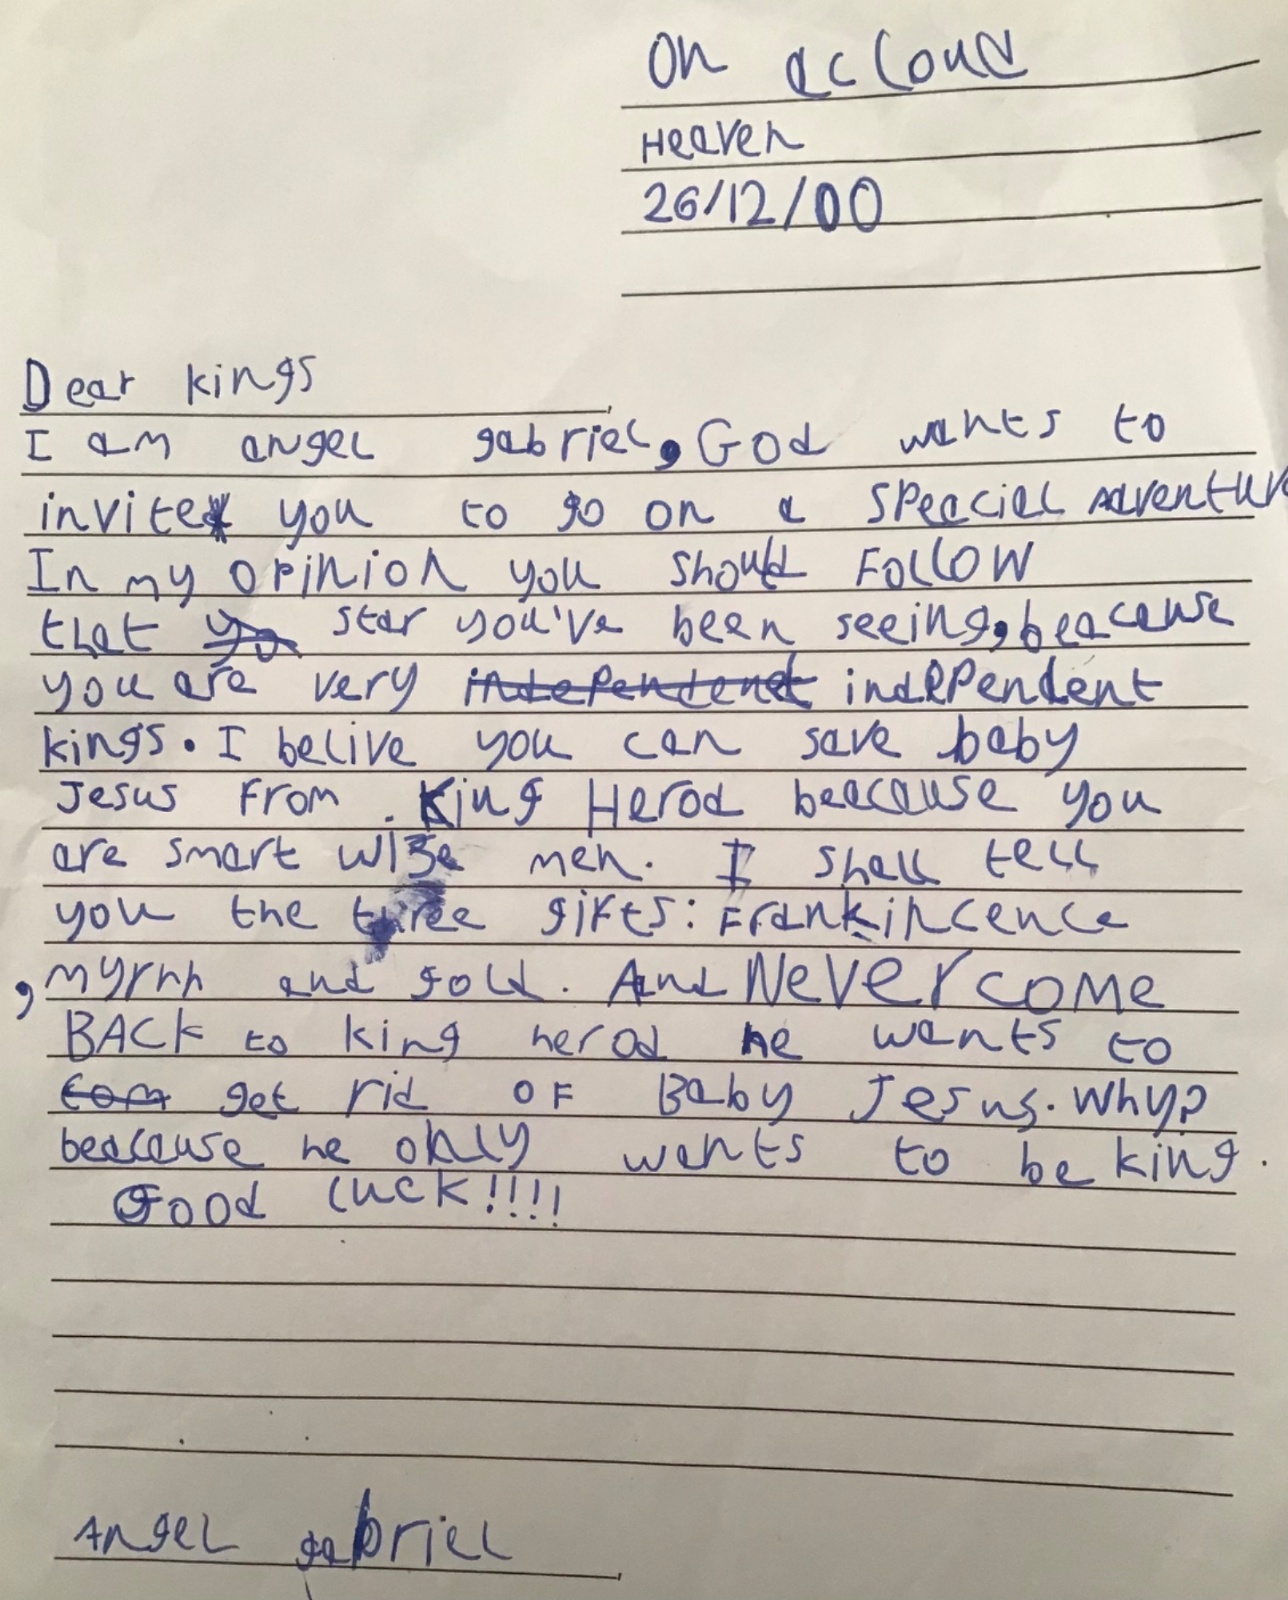 On acloud
Heaven
26/12/00
Dear kings
I am angel gabriel, God wants to
invite you to go on a speacial Adventur
In my opinion you should FOLLOW
that star you've been seeing, beacause
you are very independent independent
kings. I belive you can save baby
Jesus from King Herod beacause you
are smart wise men. I shall tell
you the three gifts: Frankincence
, myrhh and gold. And Never come
BACK to king herod he wants to
get rid OF Baby Jesus. Why?
beacause he only wants to be king.
Good luck!!!!
Angel gabriel